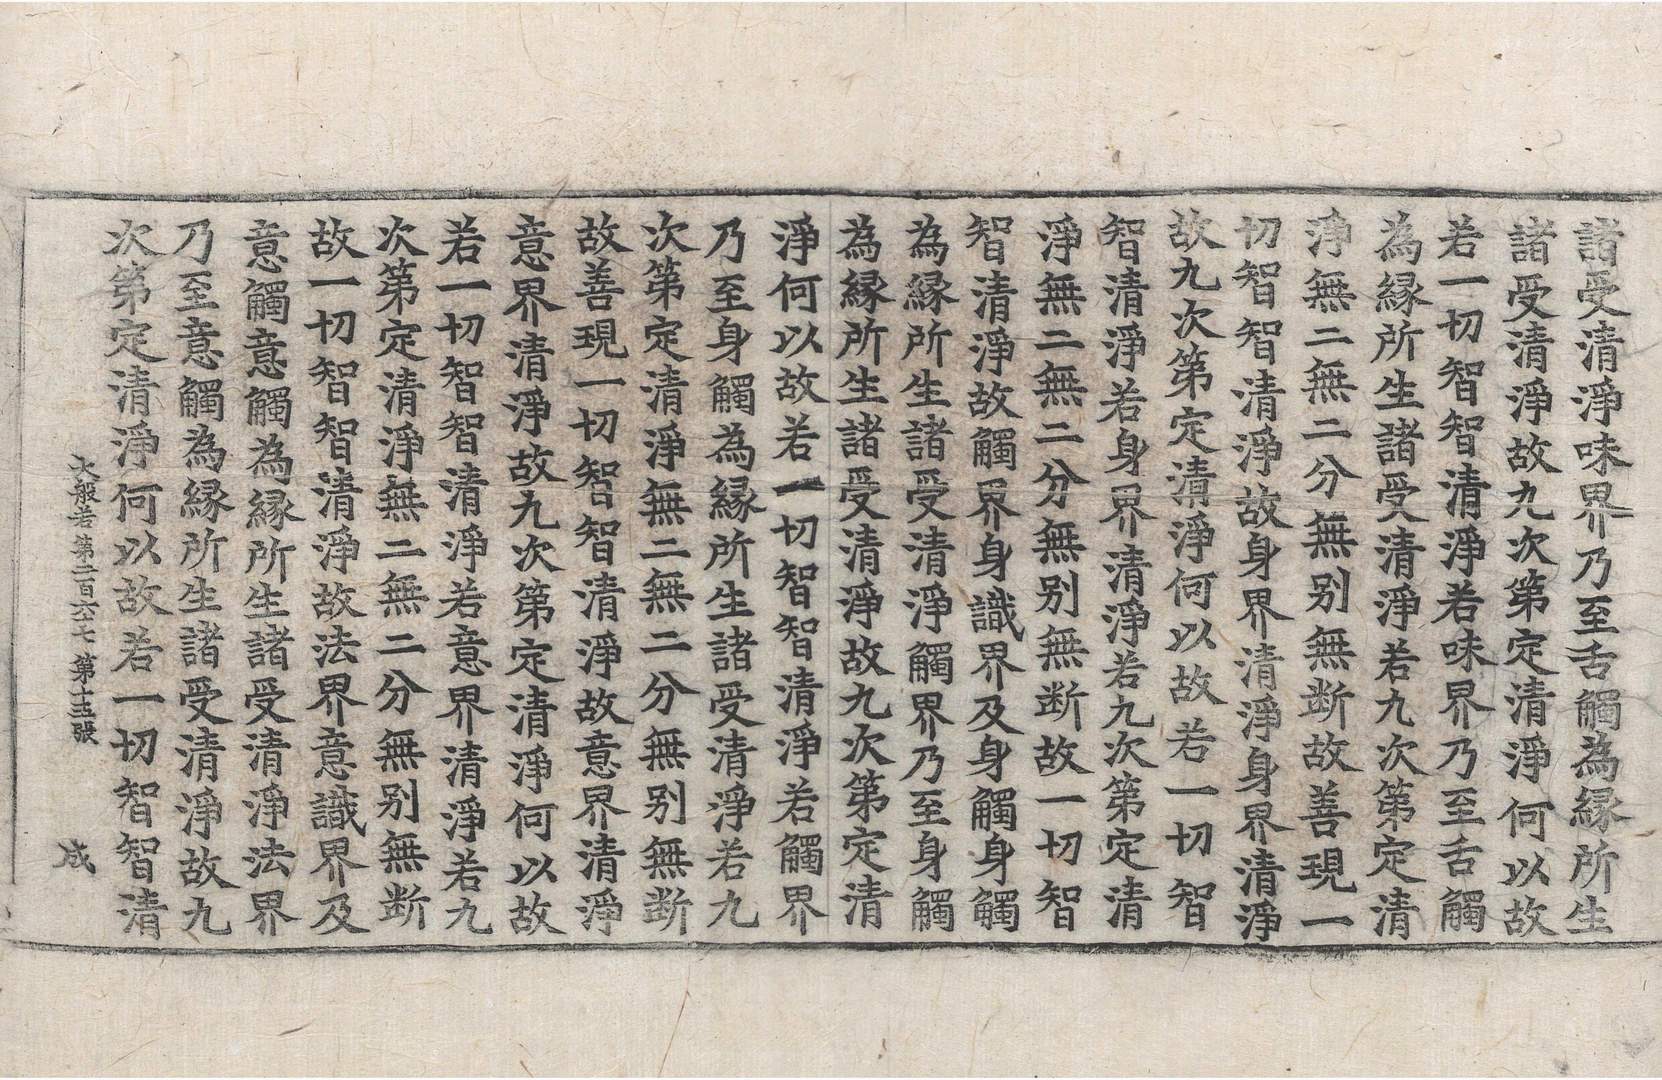 諸受清淨味界乃至舌觸為縁所生
諸受清淨故九次第定清淨何以故
若一切智智清淨若味界乃至舌觸
為縁所生諸受清淨若九次第定清
淨無二無二分無別無断故善現一
切智智清淨故身界清淨身界清淨
故九次第定清淨何以故若一切智
智清淨若身界清淨若九次第定清
淨無二無二分無別無断故一切智
智清淨故觸界身識界及身觸身觸
為縁所生諸受清淨觸界乃至身觸
為縁所生諸受清淨故九次第定清
淨何以故若一切智智清淨若觸界
乃至身觸為縁所生諸受清淨若九
次第定清淨無二無二分無別無断
故善現一切智智清淨故意界清淨
意界清淨故九次第定清淨何以故
若一切智智清淨若意界清淨若九
次第定清淨無二無二分無別無断
故一切智智清淨故法界意識界及
意觸意觸為縁所生諸受清淨法界
乃至意觸為縁所生諸受清淨故九
次第定清淨何以故若一切智智清
大般若第二百六七 第十五張 成